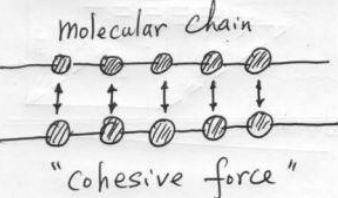 molecular chain
"cohesive force"